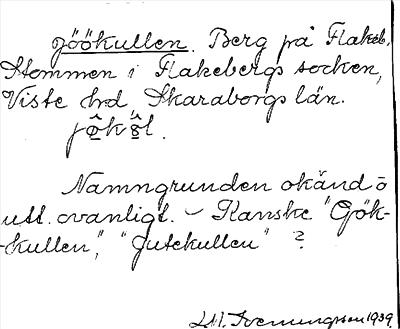 jöökullen. Berg på Flakeb.
Stommen i Flakebergs socken,
Viste hrd, Skaraborgs län.
Namngrunden okänd o
utt. ovanligt. – Kanske "Gök-
kullen", "Jutekullen" ?
1939.